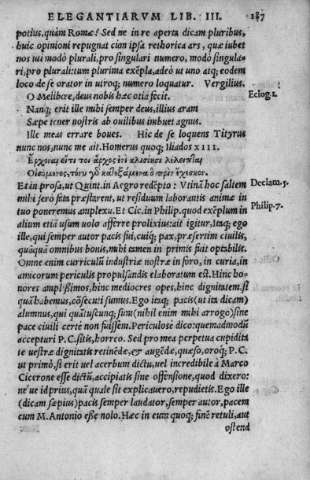 ELEGANTIARVM LIB. III. 187
potius, quàm Romæ? Sed ne in re aperta dicam pluribus,
huic opinioni repugnat cion ipsa rethorica ars, quæ iubet
nos uti modò plurali, pro singulari numero, modò singula-
ri, pro plurali: tum plurima exẽpla, adeò ut uno atq; eodem
loco de se orator in utroq; numero loquatur. Vergilius.
O Melibœe, deus nobis hæc otia fecit.
Eclog. 1.
Nanq; erit ille mihi semper deus, illius aram
Sæpe tener nostris ab ouilibus imbuet agnus.
Ille meas errare boues. Hic de se loquens Tityrus
nunc nos, nunc me ait. Homerus quoq; Iliados XIII.
Et in prosa, ut Quint. in Aegro redẽpto: Vtinã hoc saltem
Declam. 5.
mihi sero fata præstarent, ut residuum laborantis animæ in
tuo poneremus amplexu. Et Cic. in Philip. quod exẽplum in
Philip. 7.
alium etiã usum uolo afferre prolixius: ait igitur, Itaq; ego
ille, qui semper autor pacis fui, cuiq; pax, præsertim ciuilis,
quãquã omnibus bonis, mihi tamen in primis fuit optabilis.
Omne enim curriculũ industriæ nostræ in foro, in curia, in
amicorum periculis propulsandis elaboratum est. Hinc ho-
nores amplissimos, hinc mediocres opes, hinc dignitatem, si
quã habemus, cõsecuti sumus. Ego itaq; pacis (ut ita dicam)
alumnus, qui quãtuscunq; sum (nihil enim mihi arrogo) sine
pace ciuili certè non fuissem. Periculose dico: quemadmodũ
accepturi P.C. sitis, horreo. Sed pro mea perpetua cupiditate
uestræ dignitatis retinẽdæ, et augẽdæ, quæso, oroq; P.C.
ut primò, si erit uel acerbum dictu, uel incredibile à Marco
Cicerone esse dictũ, accipiatis sine offensione, quod dixero:
ne'ue id prius, quã quale sit explicauero, repudietis. Ego ille
(dicam sæpius) pacis semper laudator, semper autor, pacem
cum M. Antonio esse nolo. Hæc in eum quoq; finẽ retuli, aut
ostend